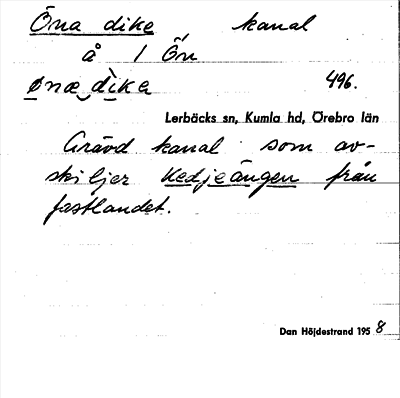 Öna dike kanal
å / Ön
ønæ dìka 496.
Lerbäcks sn, Kumla hd, Örebro län
Grävd kanal som av-
skiljer Kedjeängen från
fastlandet.
Dan Höjdestrand 1958